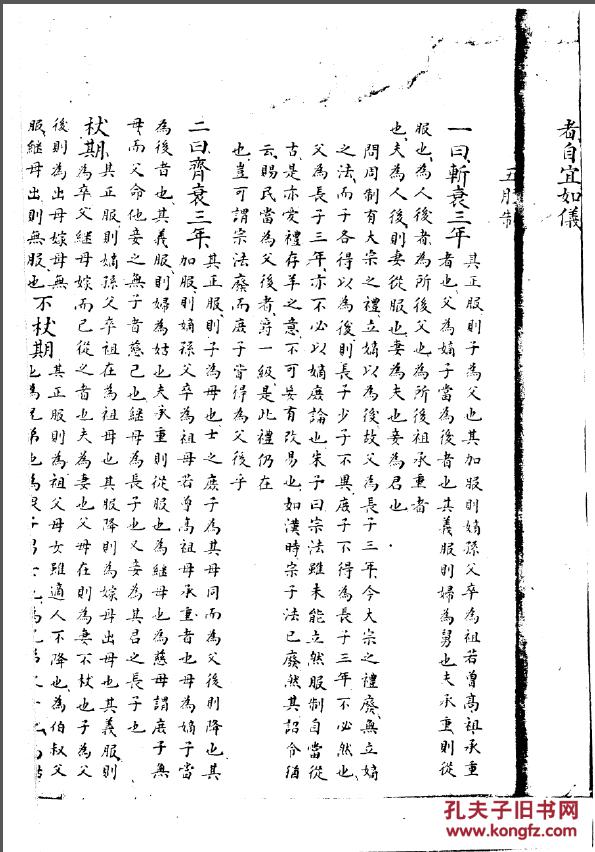 者自宜如儀
五服制
一曰斬衰三年 其正服則子為父也其加服則嫡孫父卒為祖若曾高祖承重
者也父為嫡子當為後者也其義服則婦為舅也夫承重則從
服也為人後者為所後父也為所後祖承重者
也夫為人後則妻從服也妻為夫也妾為君也
問周制有大宗之禮立嫡以為後故父為長子三年今大宗之禮廢無立嫡
之法而子各得以為後則長子少子不異庶子不得為長子三年不必然也
父為長子三年亦不必以嫡庶論也朱子曰宗法雖未能立然服制自當從
古是亦愛禮存羊之意不可妄有改易也如漢時宗子法已廢然其詔令猶
云賜民當為父後者爵一級是此禮仍在
也豈可謂宗法廢而庶子皆得為父後乎
二曰齊衰三年 其正服則子為母也士之庶子為其母同而為父後則降也其
加服則嫡孫父卒為祖母若曾高祖母承重者也母為嫡子當
為後者也其義服則婦為姑也夫承重則從服也為繼母也為慈母謂庶子無
母而父命他妾之無子者慈己也繼母為長子也又妾為其君之長子也
杖期 其正服則嫡孫父卒祖在為祖母也其服降則為嫁母出母也其義服則
為卒父繼母嫁而己從之者也夫為妻也父母在則為妻不杖也子為父
後則為出母嫁母無
服繼母出則無服也 不杖期 其正服則為祖父母女雖適人不降也為伯叔父
也為兄弟也為
孔夫子旧书网
www.kongfz.com